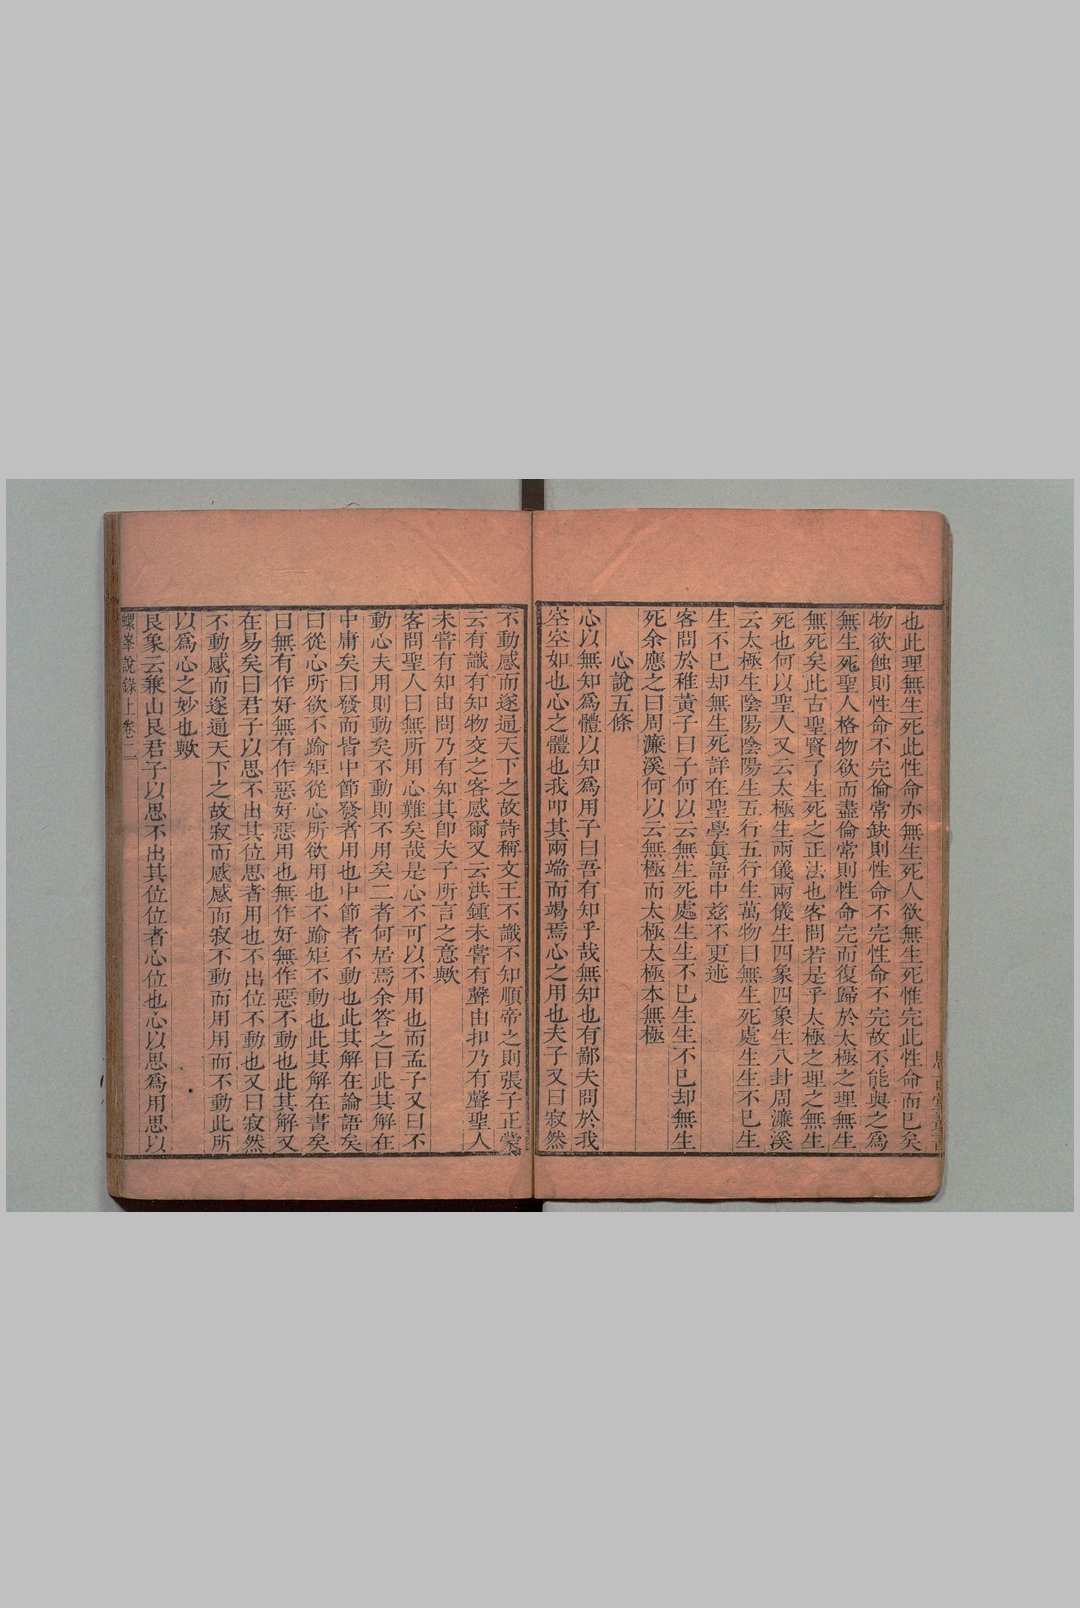 也此理無生死此性命亦無生死人欲無生死惟完此性命而已矣
物欲蝕則性命不完倫常缺則性命不完性命不完故不能與之爲
無生死聖人格物欲而盡倫常則性命完而復歸於太極之理無生
無死矣此古聖賢了生死之正法也客問若是乎太極之理之無生
死也何以聖人又云太極生兩儀兩儀生四象四象生八卦周濂溪
云太極生陰陽陰陽生五行五行生萬物曰無生死處生生不已生
生不已却無生死詳在聖學眞語中玆不更述
客問於稚黃子曰子何以云無生死處生生不已生生不已却無生
死余應之曰周濂溪何以云無極而太極太極本無極
心說五條
心以無知爲體以知爲用子曰吾有知乎哉無知也有鄙夫問於我
空空如也心之體也我叩其兩端而竭焉心之用也夫子又曰寂然
不動感而遂通天下之故詩稱文王不識不知順帝之則張子正蒙
云有識有知物交之客感爾又云洪鍾未嘗有聲由扣乃有聲聖人
未嘗有知由問乃有知其卽夫子所言之意歟
客問聖人曰無所用心難矣哉是心不可以不用也而孟子又曰不
動心夫用則動矣不動則不用矣二者何居焉余答之曰此其解在
中庸矣曰發而皆中節發者用也中節者不動也此其解在論語矣
曰從心所欲不踰矩從心所欲用也不踰矩不動也此其解在書矣
曰無有作好無有作惡好惡用也無作好無作惡不動也此其解又
在易矣曰君子以思不出其位思者用也不出位不動也又曰寂然
不動感而遂通天下之故寂而感感而寂不動而用用而不動此所
以爲心之妙也歟
艮象云兼山艮君子以思不出其位位者心位也心以思爲用思以
螺峯說錄上卷二